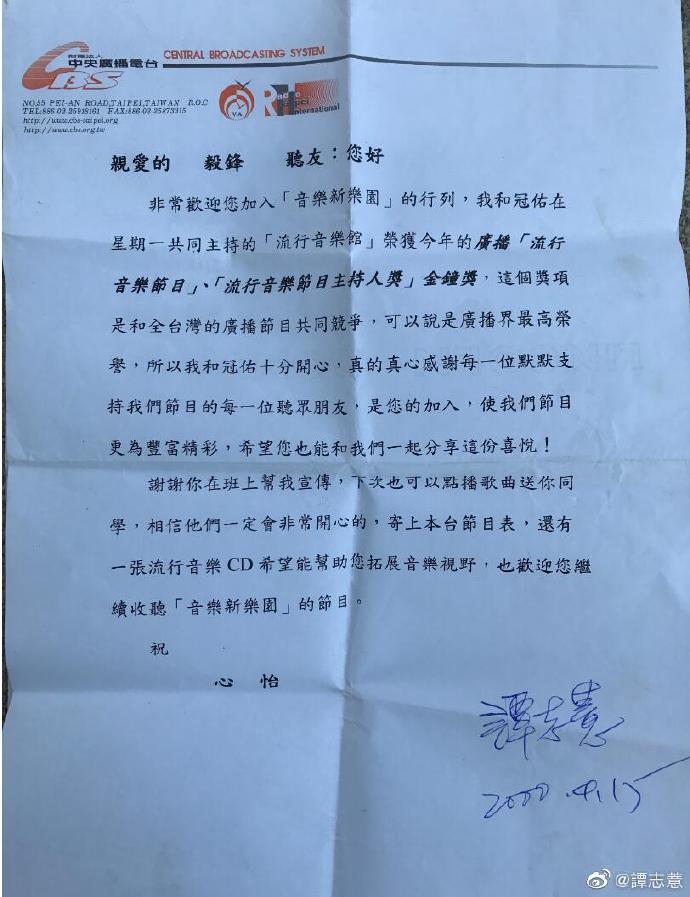 財團法人
中央廣播電台
CBS
CENTRAL BROADCASTING SYSTEM
NO.55 PEI-AN ROAD,TAIPEI,TAIWAN R.O.C
http://www.cbs-taipei.org
http://www.cbs.org.tw
VA
Radio
Taipei
International
親愛的 毅鋒 聽友：您好
非常歡迎您加入「音樂新樂園」的行列，我和冠佑在
星期一共同主持的「流行音樂館」榮獲今年的廣播「流行
音樂節目」、「流行音樂節目主持人獎」金鐘獎，這個獎項
是和全台灣的廣播節目共同競爭，可以說是廣播界最高榮
譽，所以我和冠佑十分開心，真的真心感謝每一位默默支
持我們節目的每一位聽眾朋友，是您的加入，使我們節目
更為豐富精彩，希望您也能和我們一起分享這份喜悅！
謝謝你在班上幫我宣傳，下次也可以點播歌曲送你同
學，相信他們一定會非常開心的，寄上本台節目表，還有
一張流行音樂CD希望能幫助您拓展音樂視野，也歡迎您繼
續收聽「音樂新樂園」的節目。
祝
心 怡
譚志薏
2000.4.15
@譚志薏